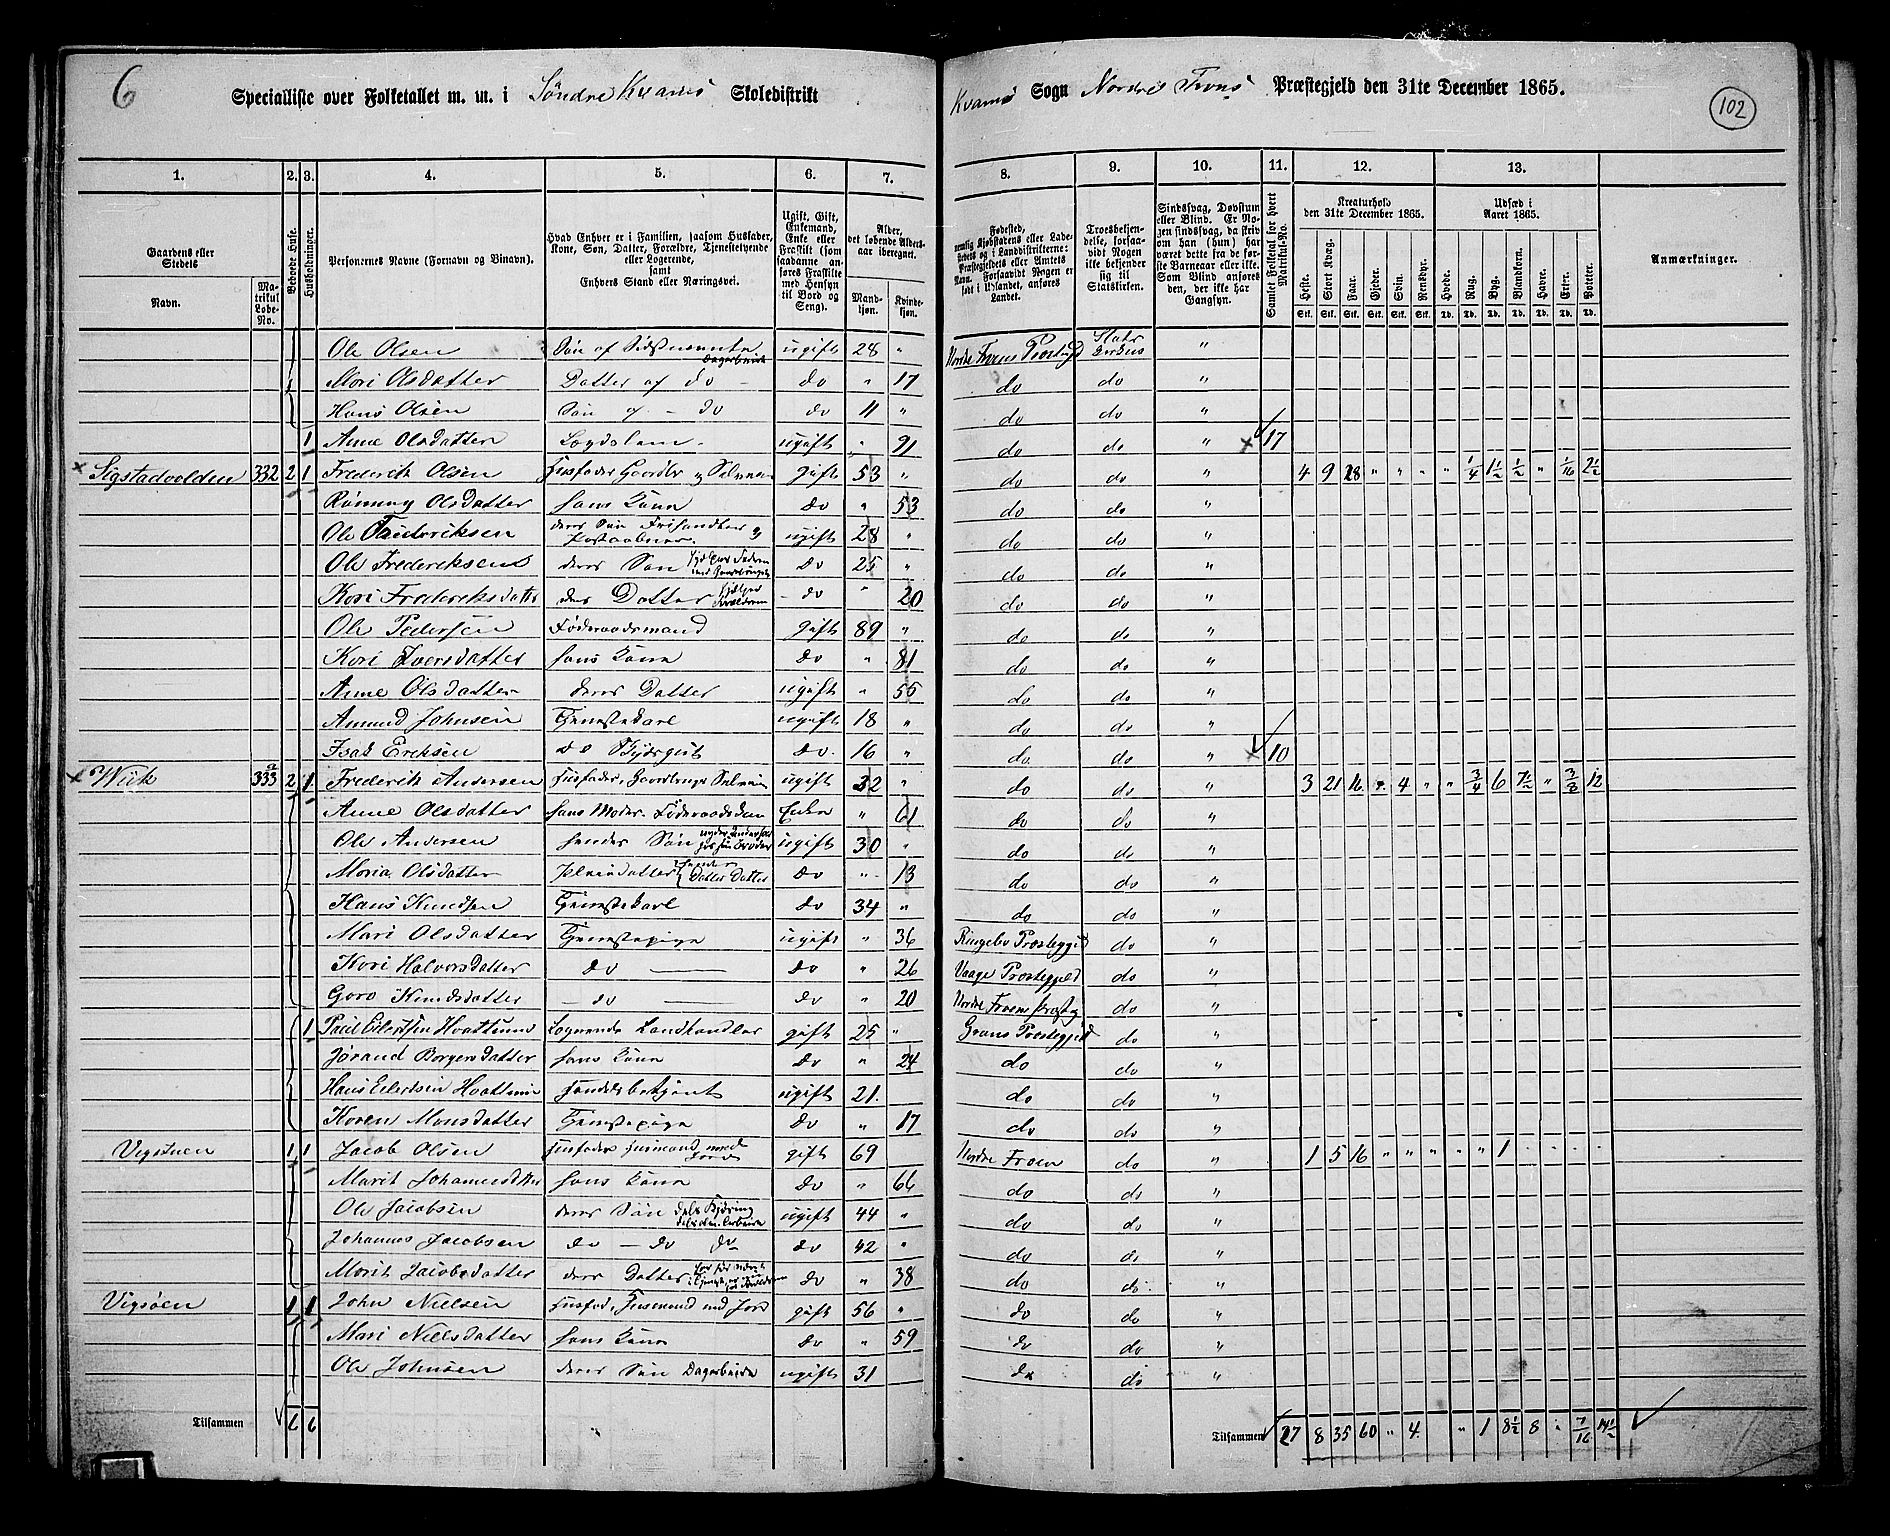 6
Specialliste over Folketallet m. m. i Søndre Kvams Skoledistrikt
Kvams Sogn Nordre Frons Præstegjeld den 31te December 1865.
102
1. 2. 3. 4. 5. 6. 7. 8. 9. 10. 11. 12. 13.
Gaardens eller Stedets
Navn.
Matrikul Løbe-No.
Beboede Huse.
Husholdninger.
Personernes Navne (Fornavn og Tilnavn).
Hvad Enhver er i Familien, saasom Husfader, Kone, Søn, Datter, Forældre, Tjenestetyende eller Logerende, samt Enhvers Stand eller Næringsvei.
Ugift, Gift, Enkemand, Enke eller Fraskilt (som saadanne anføres Fraskilte med Hensyn til Bord og Seng).
Alder, det løbende Aldersaar iberegnet.
Mandkjøn. Kvindekjøn.
Fødested, nemlig Kjøbstadens eller Ladestedets og i Landdistrikterne: Præstegjeldets eller Amtets Navn. Forsaavidt Nogen er født i Udlandet, anføres Landet.
Troesbekjendelse, forsaavidt Nogen ikke bekjender sig til Statskirken.
Sindssvag, Døvstum eller Blind. Er Nogen sindssvag, da skriv om han (hun) har været dette fra de første Barneaar eller ikke. Som Blind anføres den, der ikke har Gangsyn.
Samlet Folketal for hvert Matrikul-No.
Kreaturhold den 31te December 1865.
Heste. Stort Kvæg. Faar. Gjeder. Svin. Rensdyr.
Udsæd i Aaret 1865.
Hvede. Rug. Byg. Blandkorn. Havre. Erter. Poteter.
Anmærkninger.
Ole Olsen Søn af Sidstnævnte Dagarbeide ugift 28 " Nordre Frons Præstegjd Stats Kirken "
Mari Olsdatter Datter af do do " 17 do do "
Hans Olsen Søn af - do do 11 " do do "
1 Anne Olsdatter Lægdslem ugift " 91 do do " 17
Sigstadvolden 332 2 1 Frederik Olsen Husfader Gaardbr og Selveier gift 53 " do do " 4 9 28 " " " " 1/4 1 1/2 1/2 " 1/16 2 1/2
Rønnug Olsdatter hans Kone do " 53 do do "
Ole Frederiksen deres Søn ugift 28 " do do "
Ole Frederiksen deres Søn hjelper Faderen med Gaardbruget do 25 " do do "
Kari Frederiksdatter deres Datter do " 20 do do "
Ole Pedersen Føderaadsmand gift 89 " do do "
Kari Iversdatter hans Kone do " 81 do do "
Anne Olsdatter deres Datter ugift " 55 do do "
Amund Johnsen Tjenestekarl ugift 18 " do do "
Isak Eriksen do do 16 " do do " 10
Wiik 333a 2 1 Frederik Andersen Husfader, Gaardbruger Selveier ugift 32 " do do " 3 21 16 " 4 " " 3/4 6 7 1/2 " 3/8 12
Anne Olsdatter hans Moder Føderaadskone Enke " 61 do do "
Ole Andersen hendes Søn ugift 30 " do do "
Maria Olsdatter Pleiedatter Datter Datter do " 13 do do "
Hans Knudsen Tjenestekarl do 34 " do do "
Mari Olsdatter Tjenestepige ugift " 36 Ringebo Præstegjd do "
Kari Halvorsdatter do do " 26 Vaage Præstegjeld do "
Goro Knudsdatter do do " 20 Nordre Frons Præstg do "
1 Paul Eilertsen Hvattum Logerende Landhandler gift 25 " Grans Præstegjeld do "
Jørand Borgersdatter hans Kone do " 24 do do "
Hans Eilertsen Hvattum Handelsbetjent ugift 21. do do "
Karen Monsdatter Tjenestepige do " 17 do do "
Vigstuen 1 1 Jacob Olsen Husfader Husmand med Jord gift 69 Nordre Fron do " 1 5 16 " " " " " 1
Marit Johannesdatter hans Kone do " 66 do do "
Ole Jacobsen deres Søn ugift 44 " do do "
Johannes Jacobsen do - do do do 42 " do do "
Marit Jacobsdatter deres Datter do " 38 do do "
Vigsøen 1 1 John Nielsen Husfad, Husmand med Jord gift 56 " do do "
Mari Nielsdatter hans Kone do " 59 do do "
Ole Johnsen deres Søn Dagarbeide ugift 31 do do "
Tilsammen 6 6
Tilsammen 27 8 35 60 " 4. " 1 8 1/2 8 " 7/16 14 1/2